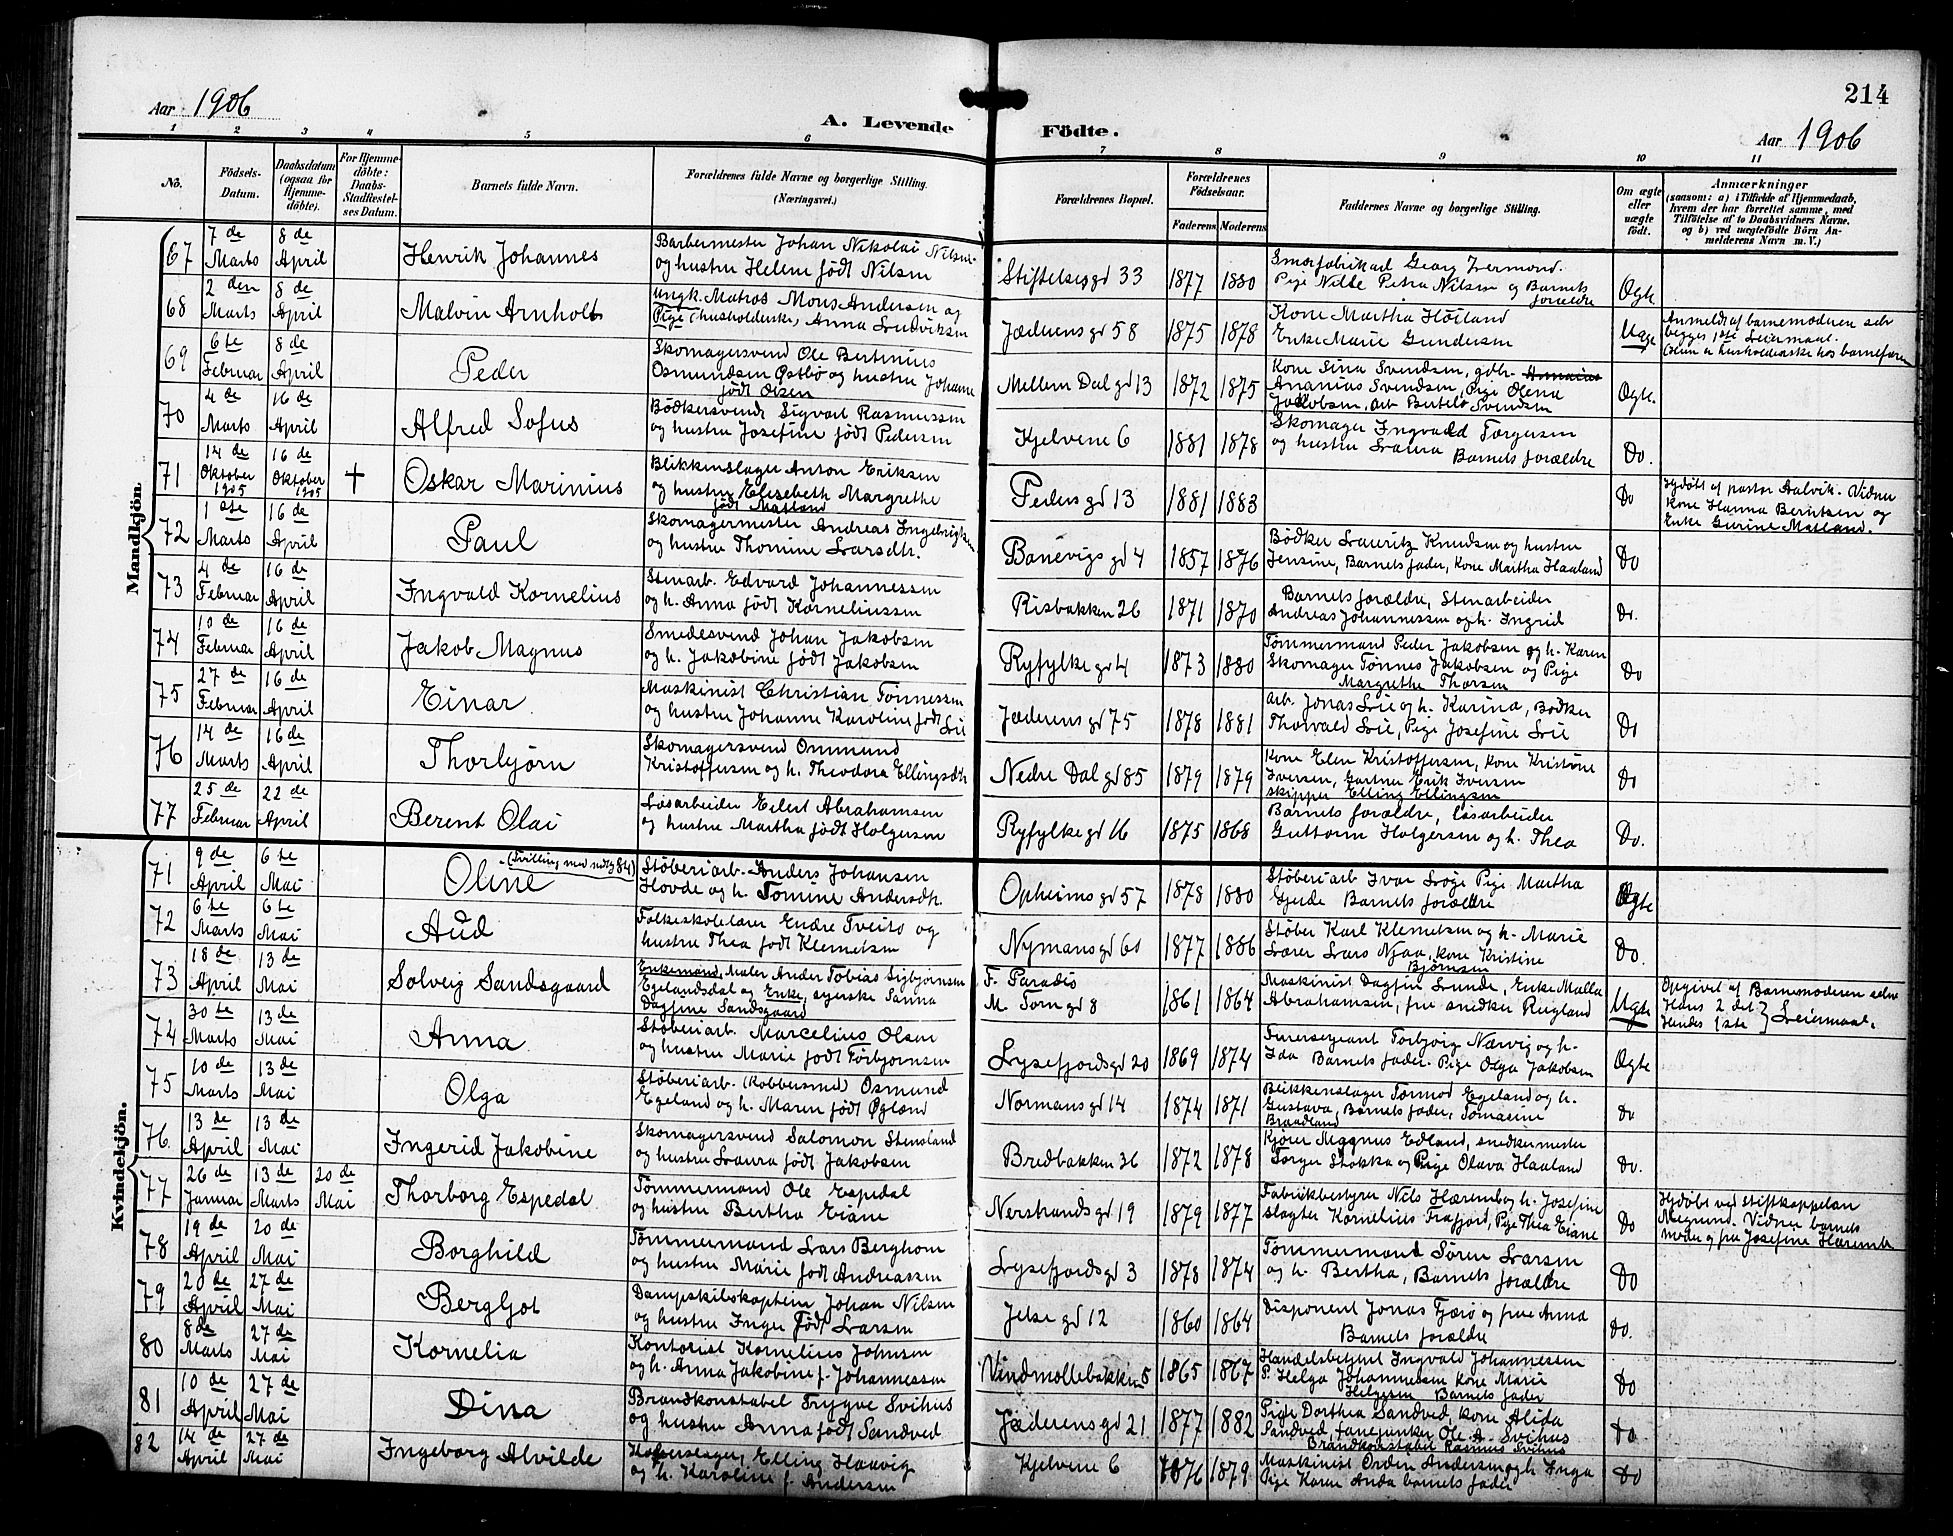 214
Aar 1906
A. Levende Födte.
Aar 1906
1 2 3 4 5 6 7 8 9 10 11
No.
Födsels-Datum.
Daabsdatum (ogsaa for Hjemmedöbte).
For Hjemmedöbte: Daabs-Stadfæstelses Datum.
Barnets fulde Navn.
Forældrenes fulde Navne og borgerlige Stilling. (Næringsvei.)
Forældrenes Bopæl.
Forældrenes Födselsaar.
Faderens. Moderens.
Faddernes Navne og borgerlige Stilling.
Om ægte eller uægte födt.
Anmærkninger
(saasom: a) i Tilfælde af Hjemmedaab, hvem der har forrettet samme, med Tilföielse af to Daabsvidners Navne, og b) ved uægtefödte Börn Anmelderens Navn m. V.)
Mandkjön.
67 7de Marts 8de April Henrik Johannes
Barbermester Johan Nikolai Nilsen
og hustru Helene født Nilsen
Stiftelsesgd 33 1877 1880
Pige Nille Petra Nilsen og Barnets forældre
Ægte
68 2den Marts 8de April Malvin Arnholt
Ungk. Matros Mons Andersen og
Pige (husholderske) Anna Ludviksen
Jæderensgd 58 1875 1878
Kone Martha Höiland
Enke Marie Gundersen
Uægte
Anmeldt af barnemoderen selv
begges 1ste Leiermaal.
69 6te Februar 8de April Peder
Skomagersvend Ole Bertinius
Osmundsen Østbö og hustru Johanne
født Olsen
Mellem Dalgd 13 1872 1875
Kone Sina Svendsen, gdbr.
Ananias Svendsen, Pige Olena
Jakobsen, arb Bertel Svendsen
Ægte.
70 4de Marts 16de April Alfred Sofus
Bödkersvend Sigvart Rasmussen
og hustru Josefine født Pedersen
Kjelvene 6 1881 1878
Skomager Ingvald Torgersen
og hustru Laura Barnets forældre
Do.
71 14de Oktober 1905 16de Oktober 1905 † Oskar Marinius
Blikkenslager Anton Eriksen
og hustru Elisebeth Margrethe
født Matland
Pedersgd 13 1881 1883
Do
Hjdøbt af pastor Aalvik. Vidner
kone Hanna Berntsen og
Enke Gurine Matland.
72 1ste Marts 16de April Paul
Skomagermester Andreas Ingebrigtsen
og hustru Thomine Larsdtr.
Banevigsgd 4 1857 1876
Bödker Lauritz Knudsen og hustru
Jensine, Barnets fader, Kone Martha Haaland
Do
73 4de Februar 16de April Ingvald Kornelius
Stenarb. Edvard Johannessen
og h. Anna født Korneliussen
Risbakken 26 1871 1870
Barnets forældre, Stenarbeider
Andreas Johannessen og h. Ingrid
Do.
74 10de Februar 16de April Jakob Magnus
Smedesvend Johan Jakobsen
og h. Jakobine født Jakobsen
Ryfylkegd 4 1873 1880
Tömmermand Peder Jakobsen og h. Karen
Skomager Tönnes Jakobsen og Pige
Margrethe Thorsen
Do
75 27de Februar 16de April Einar
Maskinist Christian Tönnessen
og hustru Johanne Karoline født Lie
Jæderensgd 75 1878 1881
Arb. Jonas Lie og h. Karina, Bödker
Thorvald Lie, Pige Josefine Lie
Do
76 14de Marts 16de April Thorbjörn
Skomagersvend Ommund
Kristoffersen og h. Theodora Ellingsdtr
Nedre Dalgd 85 1879 1879
Kone Elen Kristoffersen, kone Kristine
Iversen, Gartner Erik Iversen
skipper Elling Ellingsen
Do
77 25de Februar 22de April Berent Olai
Løsarbeider Eilert Abrahamsen
og hustru Martha født Holgersen
Ryfylkegd 16 1875 1868
Barnets forældre, løsarbeider
Guttorm Holgersen og h. Thea
Do.
Kvindekjön.
71 9de April 6te Mai Oline
Støberiarb. Anders Johansen
Hovde og h. Tomine Andersdtr.
Opheimsgd 57 1878 1880
Støberiarb Ivar Løge Pige Martha
Gjerde Barnets forældre
Ægte
72 6te Marts 6te Mai Aud
Folkeskolelærer Endre Tveito og
hustru Thea født Klemetsen
Nymansgd 60 1877 1886
Støber Karl Klemetsen og h. Marie
Lærer Lars Njaa, kone Kristine
Björnsen
Do.
73 18de April 13de Mai Solveig Sandsgaard
Enkemand, Maler Ander Tobias Sigbjørnsen
Egelandsdal og Enke, syerske Sanna
Dagfine Sandsgaard
F. Paradis
M. Torngd 8 1861 1864
Maskinist Dagfin Lunde, Enke Malla
Abrahamsen, fru snedker Rugland
Uægte
Opgivet af Barnemoderen selv
Hans 2det
Hendes 1ste } Leiermaal.
74 30te Marts 13de Mai Anna
Støberiarb. Marcelius Olsen
og hustru Marie født Torbjørnsen
Lysefjordsgd 20 1869 1874
Furersergeant Torbjørg Nærvig og h.
Ida Barnets fader. Pige Olga Jakobsen
Ægte
75 10de Marts 13de Mai Olga
Støberiarb. (Kobbersmed) Osmund
Egeland og h. Maren født Øglænd
Normansgd 14 1874 1871
Blikkenslager Tormod Egeland og h.
Gustava, Barnets fader, Tomasine
Braadland
Do
76 13de April 13de Mai Ingerid Jakobine
Skomagersvend Salomon Stensland
og hustru Laura født Jakobsen
Bredbakken 36 1872 1878
Kjører Magnus Edland, snedkermester
Torger Stokka og Pige Olava Haaland
Do.
77 26de Januar 13de Marts 20de Mai Thorborg Espedal
Tømmermand Ole Espedal
og hustru Bertha Eiane
Nerstrandsgd 19 1879 1877
Fabrikbestyrer Nils Haaremb og h. Josefine
Slagter Kornelius Frafjord, Pige Thea Eiane
Do
Hjdøbt ved stiftkappelan
Vidner barnets
moder og fru Josefine
78 19de April 20de Mai Borghild
Tømmermand Lars Berghom
og hustru Marie født Andreassen
Lysefjordsgd 3 1878 1874
Tømmermand Søren Larsen
og h. Bertha, Barnets forældre
Do
79 20de April 27de Mai Bergljot
Dampskibskaptein Johan Nilsen
og hustru Inger født Larsen
Jelsegd 12 1860 1864
Disponent Jonas Tjærø og frue Anna
Barnets forældre
Do.
80 8de Marts 27de Mai Kornelia
Kontorist Kornelius Johnsen
og h. Anna Jakobine f. Johannessen
Vindmøllebakken 5 1865 1867
Handelsbetjent Ingvald Johannessen
P. Helga Johannessen Kone Marie
Helgesen Barnets fader
Do
81 10de April 27de Mai Dina
Brandkonstabel Trygve Svihus
og hustru Anna født Sandved
Jæderensgd 21 1877 1882
Pige Dorthea Sandved, kone Alida
Sandved, fanejunker Ole A. Svihus
Brandkonstabel Rasmus Svihus
Do.
82 14de April 27de Mai Ingeborg Alvilde
Elling Haavig
og h. Karoline f. Andersen
Kjelvene 6 1876 1879
Maskinist Orden Andersen og h. Inga
Pige Karen Anda barnets fader
Do